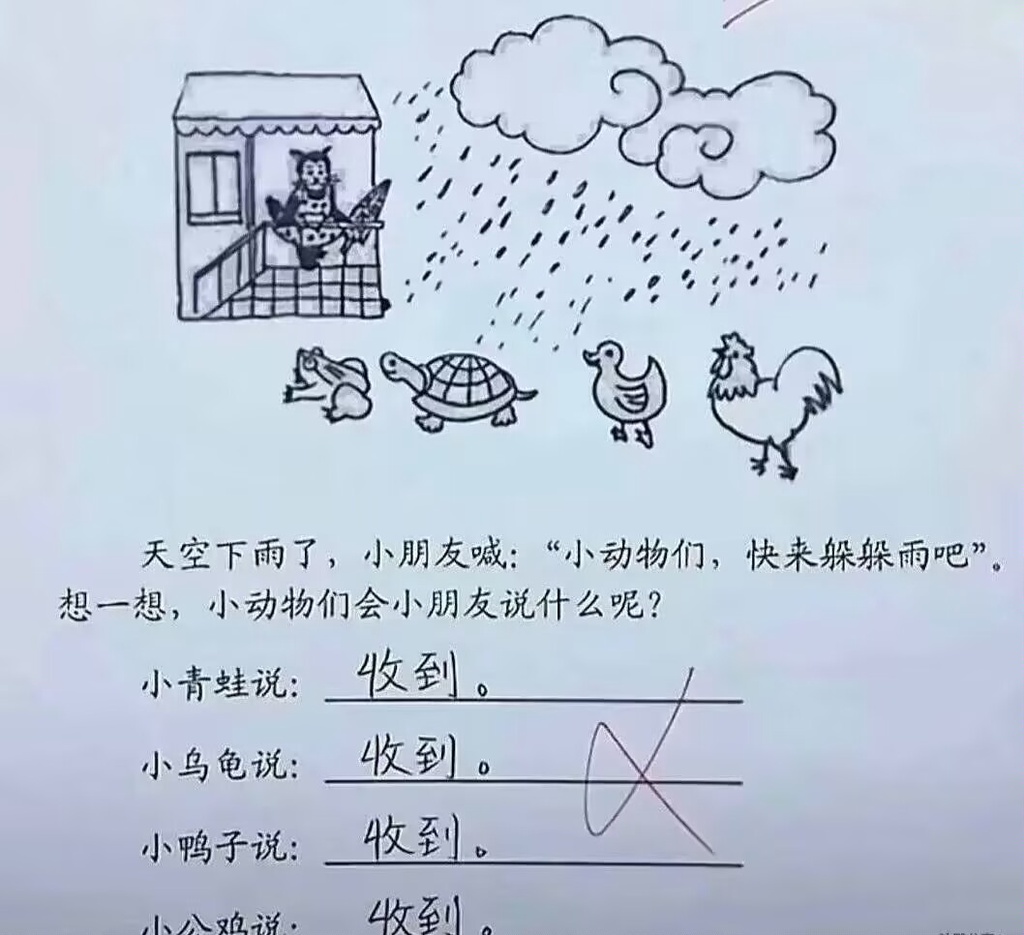 天空下雨了，小朋友喊：“小动物们，快来躲躲雨吧”。
想一想，小动物们会小朋友说什么呢？
小青蛙说：收到。
小乌龟说：收到。
小鸭子说：收到。
小公鸡说：收到。